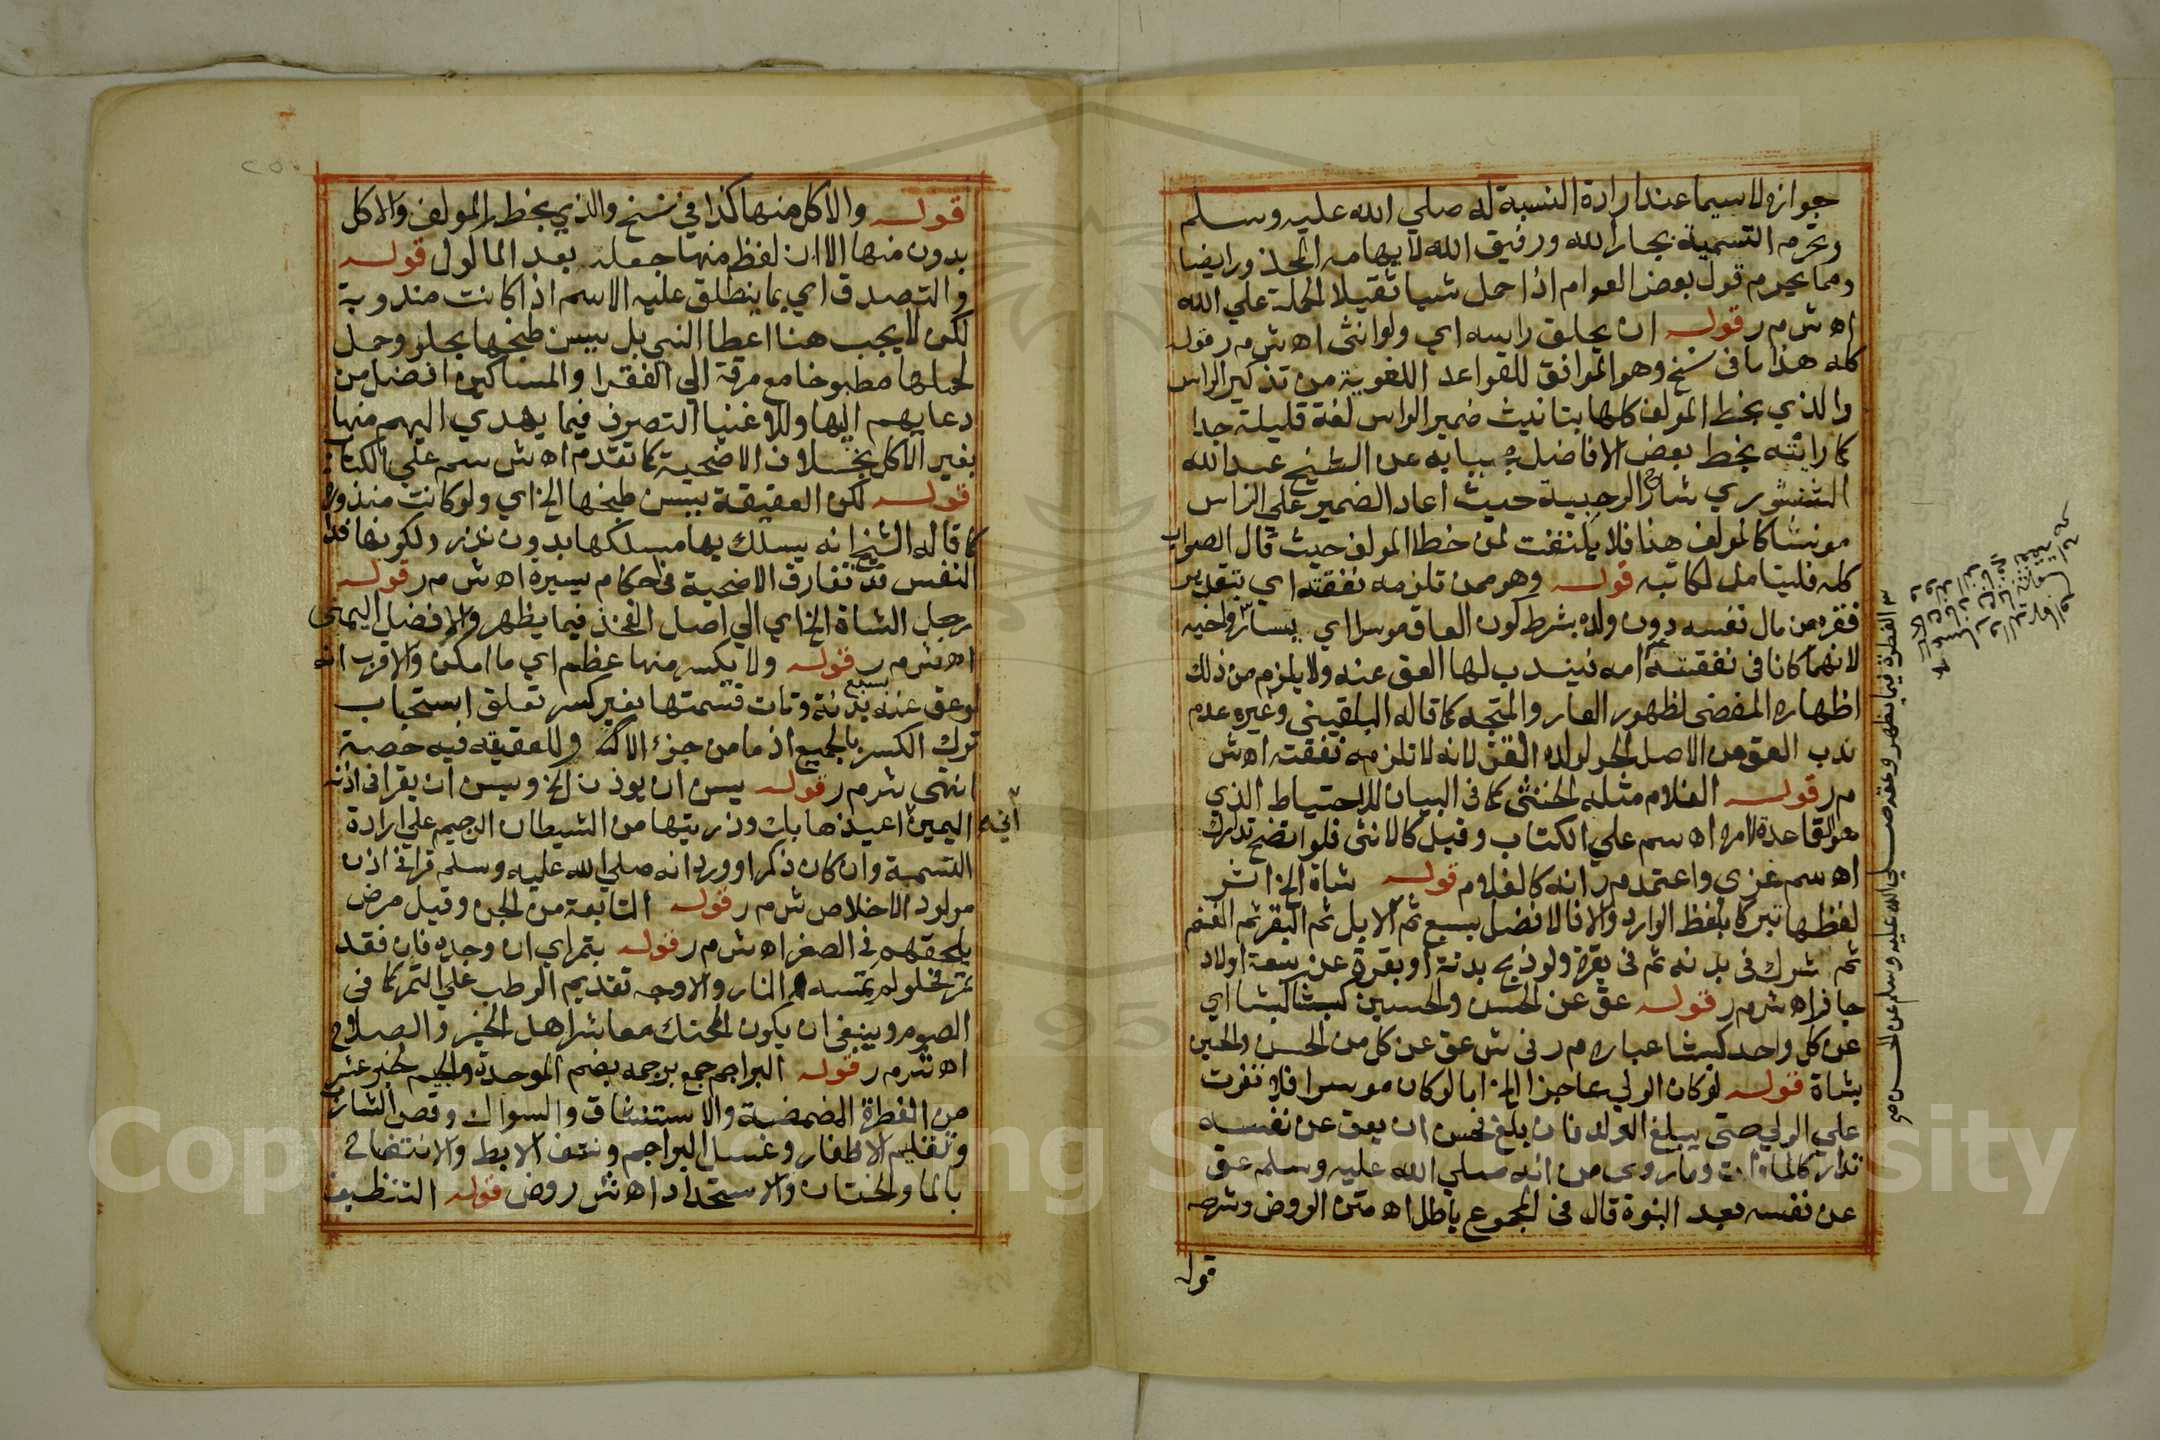 جوازه لاسيما عند ارادة النسبة له صلي الله عليه وسلم
وتحرم التسمية بجار الله ورفيق الله لايهامه المحذور ايضا
ومما يحرم قول بعض العوام اذا حمل شيا ثقيلا الحملة علي الله
اه ش م ر قوله ان يحلق راسه اي ولو انثى اه ش م ر قوله
كله هذا ما في نسخ وهو الموافق للقواعد اللغوية من تذكير الراس
والذي بخط المولف كلها بتانيث ضمير الراس لغة قليلة جدا
كما رايته بخط بعض الافاضل عن الشيخ عبد الله
الشنشوري شارح الرحبية حيث اعاد الضمير علي الراس
مونثا كالمولف هذا فلا يلتفت لمن خطا المولف حيث قال الصواب
كله فليتامل لكاتبه قوله وهو ممن تلزمه نفقته اي بتقدير
فقره من مال نفسه دون ولده بشرط كون العاق موسرا اي
لانهما كانا في نفقته امه فيندب لها العق عنه ولا يلزم من ذلك
اظهاره المفضى لظهور العار والمتجه كما قاله البلقيني وغيره عدم
ندب العق من الاصل الحر لولده القن لانه لا تلزمه نفقته اه ش
م ر قوله الغلام مثله الخنثى كما في البيان للاحتياط الذي
هو القاعدة لامره اه سم علي الكتاب وقيل كالانثى فلو اتضح تدارك
اه سم غزي واعتمد م ر انه كالغلام قوله شاة الخ اثر
لفظها تبركا بلفظ الوارد والا فالافضل بسبع ثم الابل ثم البقر ثم الغنم
ثم شرك في بدنه ثم في بقرة ولو ذبح بدنة او بقرة عن سبعة اولاد
جاز اه ش م ر قوله عق عن الحسن والحسين كبشا كبشا اي
عن كل واحد كبشا عباره م ر في ش عق عن كل من الحسن والحسين
بشاة قوله لو كان الولي عاجزا الخ اما لو كان موسرا فلا تفوت
علي الولي حتى يبلغ الولد فان بلغ فحسن ان يعق عن نفسه
تداركا لما فات وما روى من انه صلي الله عليه وسلم عق
عن نفسه بعد النبوة قال في المجموع باطل اه متن الروض وشرحه
قوله
قوله والاكل منها كذا في نسخ والذي بخط المولف والاكل
بدون منها الا ان لفظ منها جعله بعد الماكول قوله
والتصدق اي بما ينطلق عليه الاسم اذا كانت مندوبة
لكن لا يجب هنا اعطا النيي بل يسن طبخها بحلو وحمل
لحمها مطبوخا مع مرقة الي الفقرا والمساكين افضل من
دعايهم اليها وللاغنيا التصرف فيما يهدي اليهم منها
بغير الاكل بخلاف الاضحية كما تقدم اه ش سم علي الكتاب
قوله لكن العقيقة يسن طبخها الخ اي ولو كانت منذورة
كما قاله الشيخ انه يسلك بها مسلكها بدون نذر ولكونها فدا
لنفس قد تفارق الاضحية في احكام يسيره اه ش م ر قوله
رجل الشاة الخ اي الي اصل الفخذ فيما يظهر والافضل اليمنى
اه ش م ر قوله ولا يكسر منها عظم اي ما امكن والاقرب انه
لو عق عنه بسبع بدنة وتات قسمتها بغير كسر تعلق استحباب
ترك الكسر بالجميع اذ ما من جزء الا وللعقيقه فيه حصة
انتهى ش م ر قوله يسن ان يوذن الخ ويسن ان يقرا في اذنه
اليمين اعيذها بك وذريتها من الشيطان الرجيم علي ارادة
التسمية وان كان ذكرا وورد انه صلي الله عليه وسلم قرا في اذن
مولود الاخلاص ش م ر قوله التابعة من الجن وقيل مرض
يلحقهم في الصغر اه ش م ر قوله بتمر اي ان وجده فان فقد
تمر فحلو لم تمسه النار والاوجه تقديم الرطب علي التمر كما في
الصوم وينبغي ان يكون المحنك معاشر اهل الخير والصلاح
اه ش م ر قوله البراجم جمع برجمه بضم الموحدة والجيم لخبر عشر
من الفطرة المضمضة والاستنشاق والسواك وقص الشارب
وتقليم الاظفار وغسل البراجم ونتف الابط والانتضاح
بالما والختان والاستحداد اه ش روض قوله التنظيف
Copy King Saud University
195